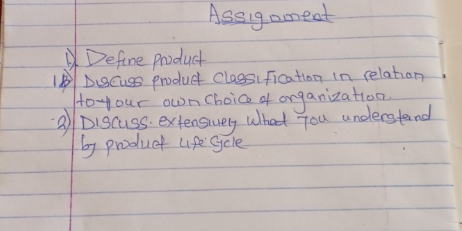 Assignment
1) Define product
1b) Discuss product classification in relation
to your own choice of organization.
2) Discuss extensively what you understand
by product life cycle